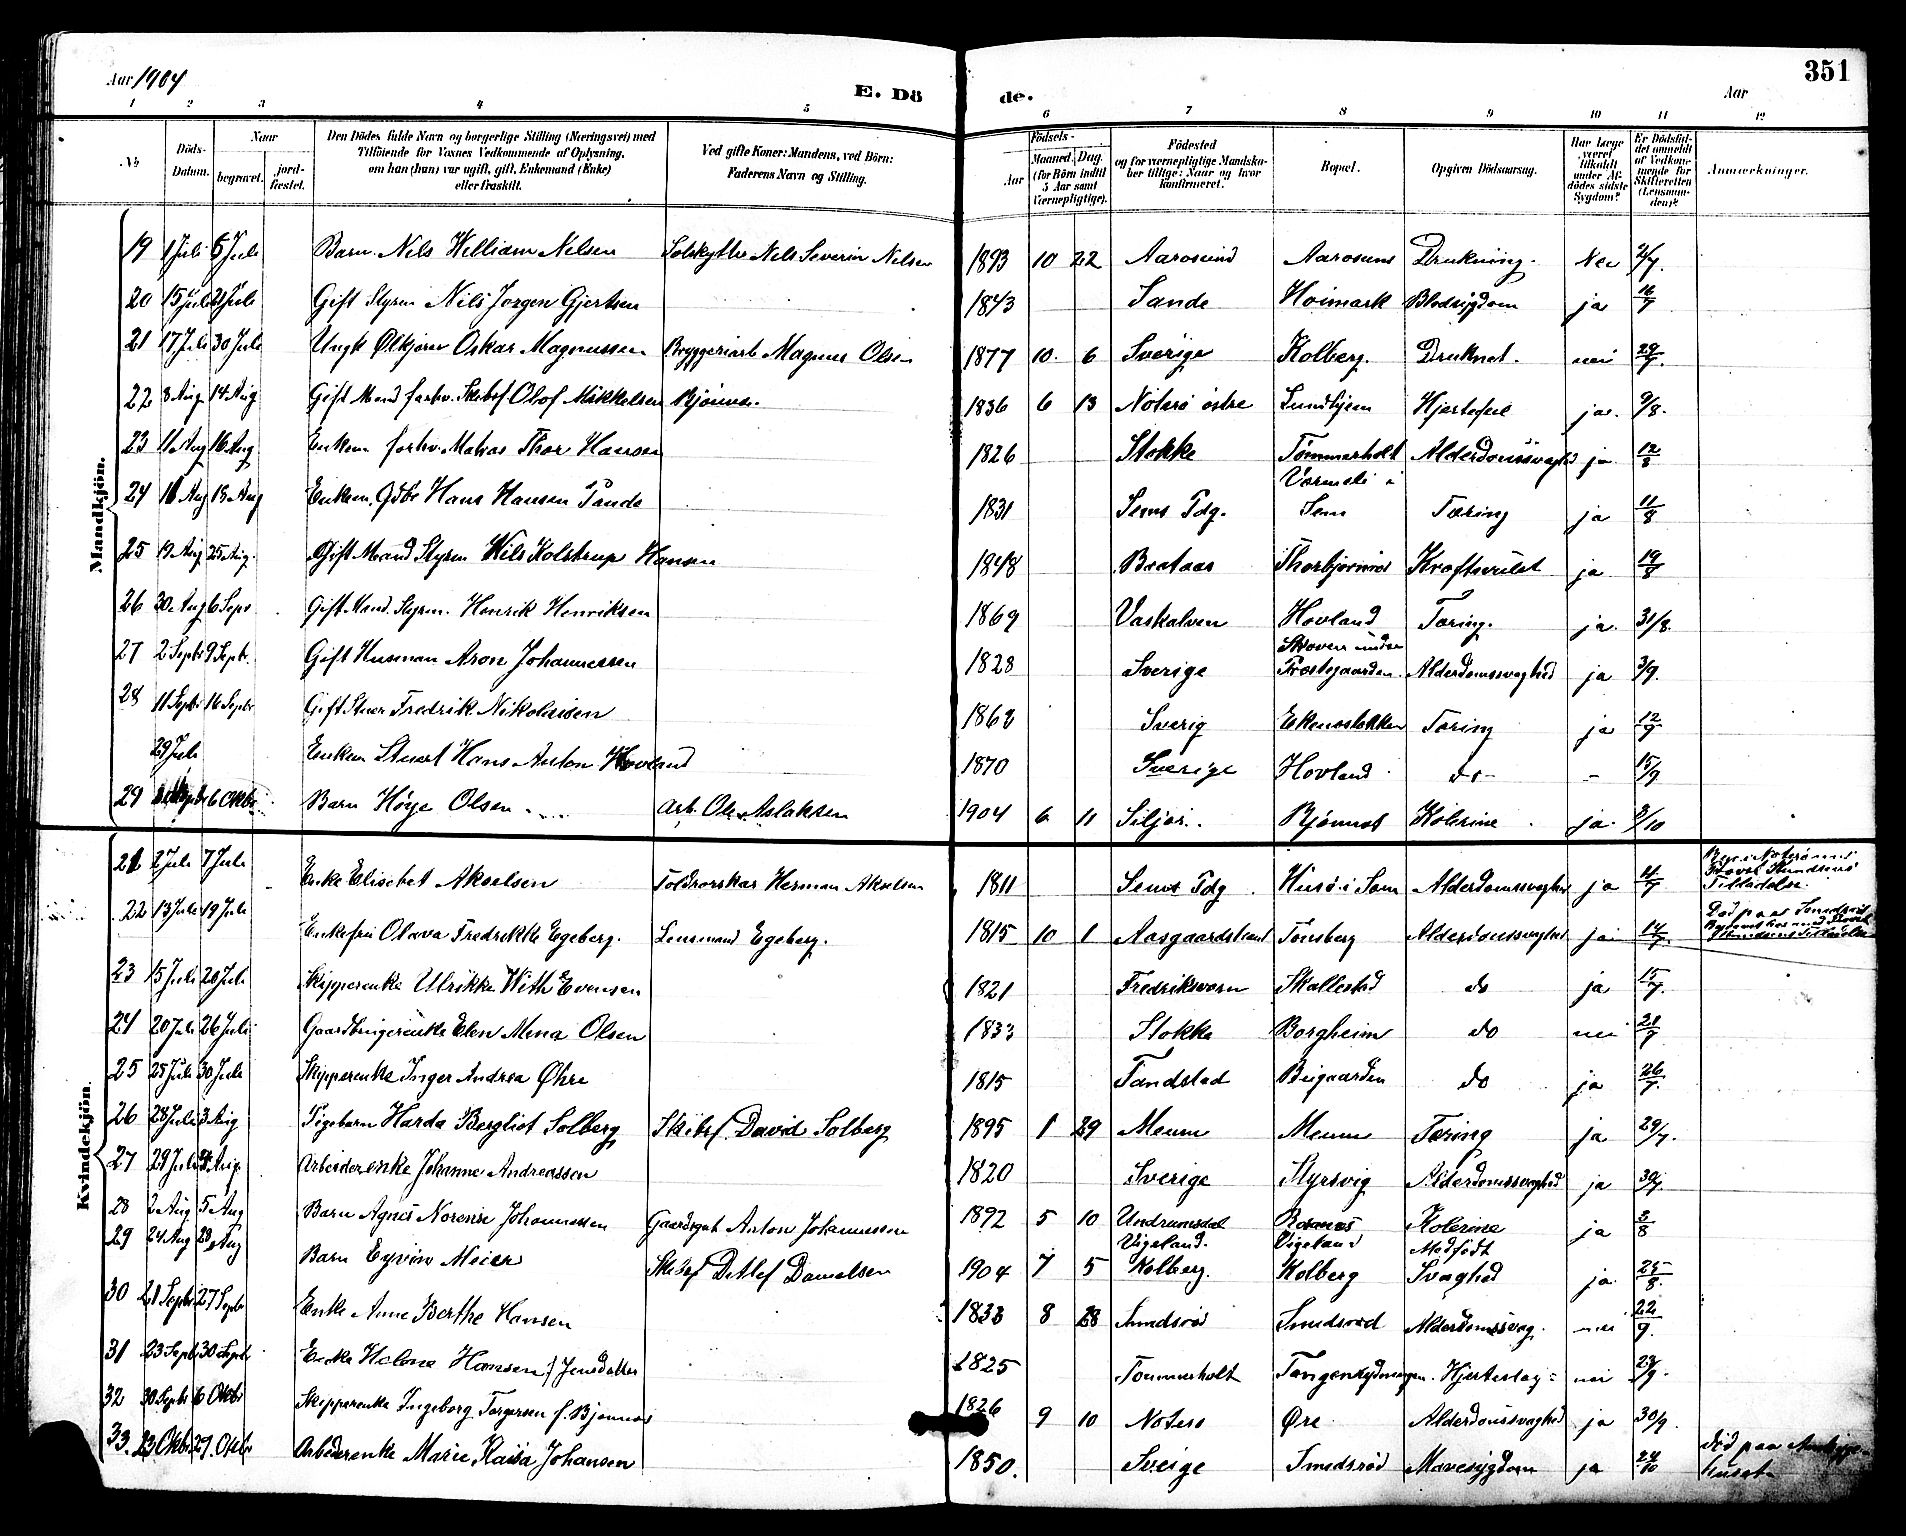 Aar 1904
E. Döde.
Aar
351
1 2 3 4 5 6 7 8 9 10 11 12
No
Döds-Datum.
Naar
begravet.
jordfæstet.
Den Dödes fulde Navn og borgerlige Stilling (Næringsvei) med
Tilföiende for Voxnes Vedkommende af Oplysning,
om han (hun) var ugift, gift, Enkemand (Enke)
eller fraskilt.
Ved gifte Koner: Mandens, ved Börn:
Faderens Navn og Stilling.
Födsels-
Aar
Maaned. Dag.
(for Börn indtil
5 Aar samt
Værnepligtige).
Födested
og for værnepligtige Mandska-
ber tillige: Naar og hvor
konfirmeret.
Bopæl.
Opgiven Dödsaarsag.
Har Læge
været
tilkaldt
under Af-
dödes sidste
Sygdom?
Er Dödsfal-
det anmeldt
af Vedkom-
mende for
Skifteretten
(Lensman-
den)?
Anmærkninger.
Mandkjön.
19 1 Juli 6 Juli Barn Nils William Nilsen Nils Severin Nilsen 1893 10 22 Aarosund Aarosund Drukning. Nei 2/7.
20 15 Juli 21 Juli Gift Styrm Nils Jorgen Gjertsen 1843 Sande Hoimark Blodsygdom ja 16/7
21 17 Juli 30 Juli Ungk Ølkjører Oskar Magnussen Bryggeriarb Magnus Olsen 1877 10. 6 Sverige Kolberg. Druknet. nei 29/7.
22 8 Aug 14 Aug Gift Mand forhv. Skibsf Olof Mikkelsen Bjönnes. 1836 6 13 Notero östre Sundhjem Hjertefeil ja. 9/8.
23 11 Aug 16 Aug Enkem. forhv. Matros Thor Hansen 1826 Stokke Tommerholt Alderdomssvaghed ja 12/8
24 11 Aug 18 Aug Enkem. Gdbr Hans Hansen Tande 1831 Sems Pdg. Sem Tæring ja 11/8
25 19 Aug 25 Aug. Gift Mand Styrm Nils Kolstrup Hansen 1848 Brataas Thorbjørnrød Kræftsvulst ja 19/8
26 30. Aug 6 Septr Gift Mand. Styrm. Henrik Henriksen 1869 Vaskalven Hovland Tæring. ja. 31/8.
27 2 Septr 9 Septr. Gift Husman Aron Johannessen 1828 Sverige Skoven under Prestegaarden. Alderdomssvaghed ja 3/9.
28 11 Septr 16 Septr Gift Stuer Fredrik Nikolaisen 1862 Sverig Ekenesbakken Tæring ja 12/9
29 Juli Enkem Stuert Hans Anton Hovland 1870 Sverige Hovland do - 15/9
29 6 Oktbr Barn Høye Olsen Arb. Ole Aslaksen 1904 6 11 Siljør. Bjönnes Kolerine ja. 3/10
Kvindekjön.
21 2 Juli 7 Juli Enke Elisebet Akselsen Toldrorskar Herman Akselsen 1811 Sems Pdg. Husö i Sem Alderdomssvaghed ja 4/7 Tilladelse.
22 13 Juli 19 Juli Enkefru Olava Fredrikke Egeberg. Lensmand Egeberg. 1815 10 1 Aasgaardstrand Tönsberg Alderdomssvaghed ja 14/7. Död paa
23 15 Juli 20 Juli Skipperenke Ulrikke With Evensen 1821 Fredriksværn Skallestad do ja 15/7.
24 20 Juli 26 Juli Gaardbrugerenke Elen Mena Olsen 1833 Stokke Borgheim do nei 21/7
25 25 Juli 30 Juli Skipperenke Inger Andrea Øhre 1815 Tandstad Beigaarden do ja 26/7.
26 28 Juli 3 Aug Pigebarn Harda Bergliot Solberg Skibsf. David Solberg 1895 1 29 Meum Meum Tæring ja 29/7.
27 29 Juli 4 Aug. Arbeiderenke Johanne Andreassen 1820 Sverige Styrsvig Alderdomssvaghed ja 30/7.
28 2 Aug 5 Aug Barn Agnes Norenie Johannessen Anton Johannessen 1892 5 10 Undrumsdal Vigeland. Vigeland Kolerine ja 3/8
29 24 Aug 28 Aug Barn Eyvin Meier Skibsf Detlef Danielsen 1904 7 5 Kolberg. Kolberg Medfödt Svaghed ja. 25/8.
30 21 Septr 27 Septr Enke Anne Berthe Hansen 1833 8 28 Smidsröd Smidsröd Alderdomssvag. nei 22/9.
31 23 Septr 30 Septr Enke Helene Hansen / Jensdatter 1825 Tommerholt Hjerteslag nei 24/9.
32 30 Septr 6 Oktbr Skipperenke Ingeborg Torgersen f. Bjønnes 1826 9 10 Notero Øre Alderdomssvaghed ja 30/9.
33. 23 Oktbr. 29. Oktbr Arbederenke Marie Kaisa Johansen 1850. Sveige Smidsröd Mavesygdom ja 24/10 Död paa